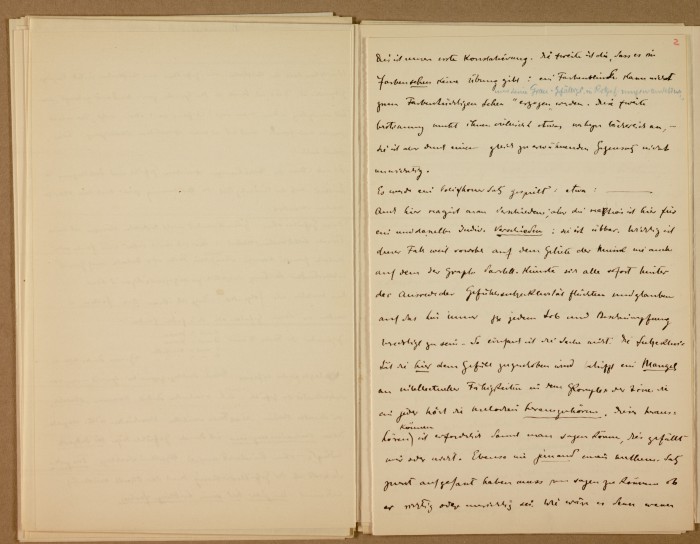 2
Dies ist unsere erste Konstatierung. Die zweite ist die, dass es im
Farbensehen keine Übung gibt: ein Farbenblinder kann nicht
zum Farbentüchtigen Sehen "erzogen" werden. Diese zweite
Bestimmung mutet Ihnen vielleicht etwas
sie ist aber durch einen gleich zu erwähnenden Gegensatz nicht
unwichtig.
Es werde ein polifhoner Satz gespielt: etwa:
Auch hier reagiert man verschieden; aber die Reaktion ist hier für
ein und denselben Indiv. verschieden: sie ist übbar. Wichtig ist
dieser Fall weil sowohl auf dem Gebiete der Musik wie auch
auf dem der Graph. Darstell. Künste wir alle sofort hinter
der Ausrede der Gefühls flüchten und glauben
auf das hin immer zu jedem Lob und Beschimpfung
berechtigt zu sein. So einfach ist die Sache nicht. Die
die hier dem Gefühl zugeschoben wird entspringt ein Mangel
an intellectueller Fähigkeiten in dem Komplex der Töne die
ein jeder hört die Melodien herauszuhören. Dies heraus-
können
hören ist erforderlich damit man sagen könne, dies gefällt
mir oder nicht. Ebenso wie jemand einen mathem. Satz
zuerst aufgefasst haben muss um sagen zu können ob
er richtig oder unrichtig sei. Wie wäre es denn wenn